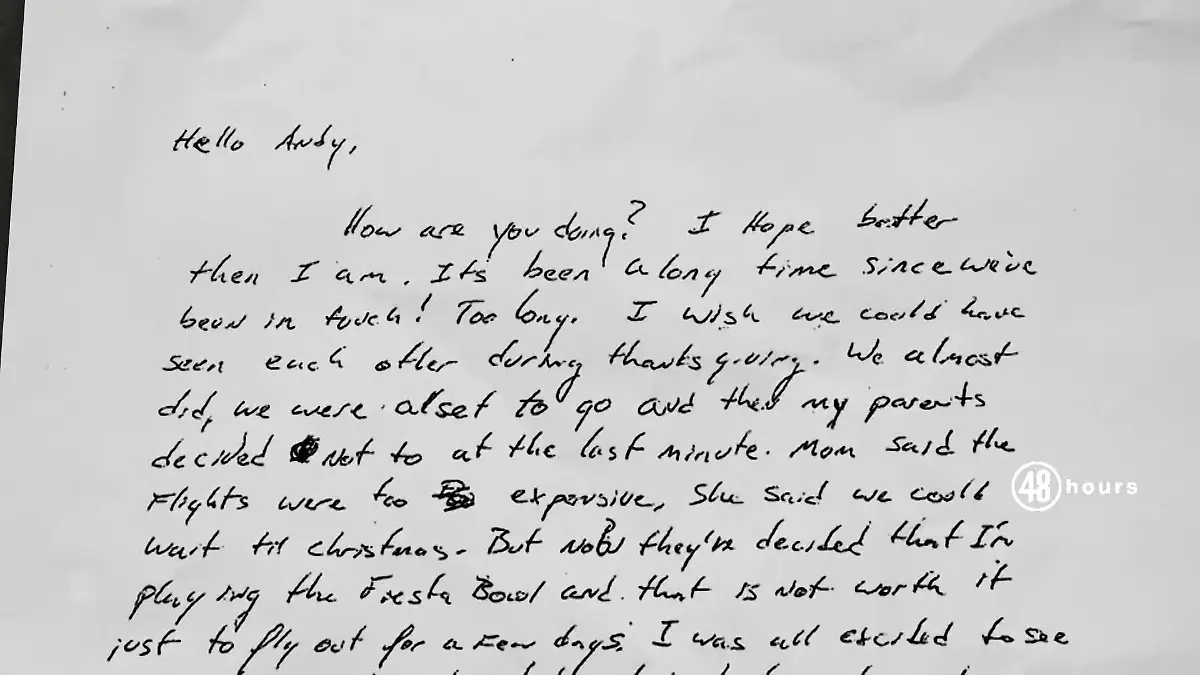 Hello Andy,
How are you doing? I Hope better
then I am. Its been a long time since we've
been in touch! Too long. I wish we could have
seen each other during thanksgiving. We almost
did, we were alset to go and then my parents
decided Not to at the last minute. Mom said the
Flights were too expensive, She said we could
wait til christmas. But now they've decided that I'm
playing the Fiesta Bowl and that is Not worth it
just to fly out for a Few days. I was all excited to see
48 hours